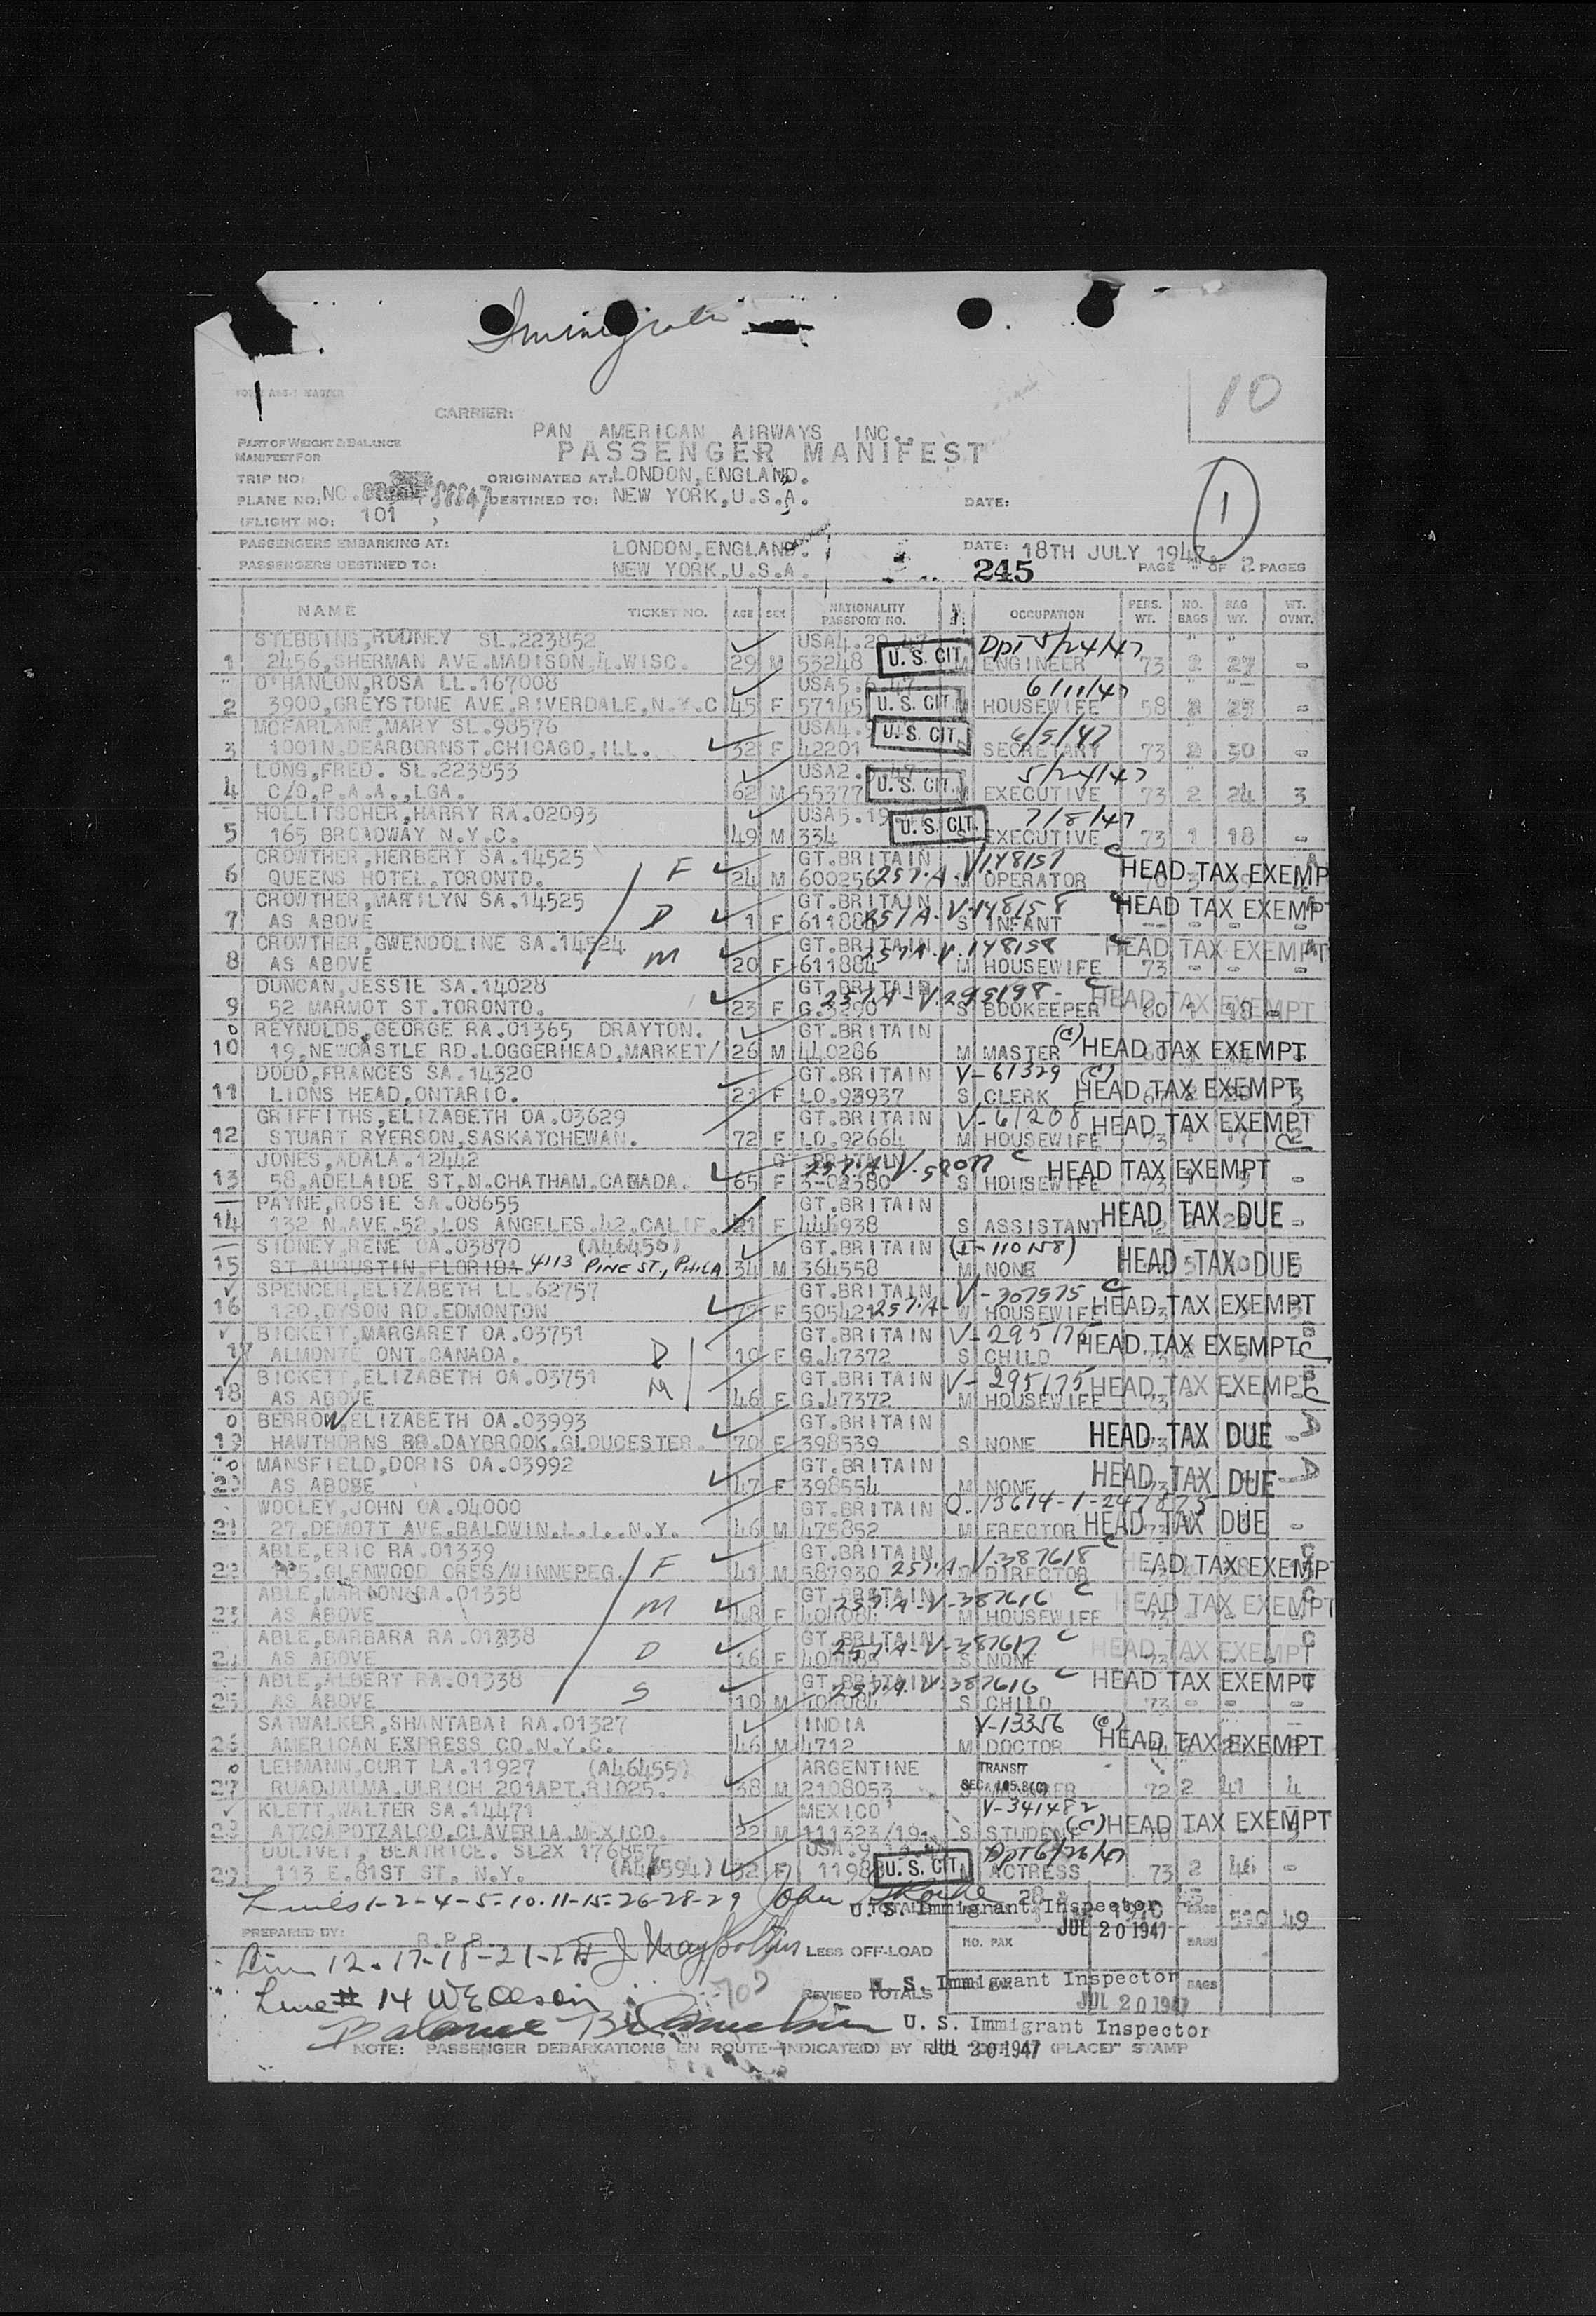 Immigrate
FORM ABS-1 MASTER
10
CARRIER:
PAN AMERICAN AIRWAYS INC.,
PART OF WEIGHT & BALANCE
PASSENGER MANIFEST
MANIFEST FOR
TRIP NO: ORIGINATED AT: LONDON, ENGLAND.
PLANE NO: NC. 88847 DESTINED TO: NEW YORK, U.S.A. DATE:
(FLIGHT NO: 101 )
1
PASSENGERS EMBARKING AT: LONDON, ENGLAND. DATE: 18TH JULY 1947.
PASSENGERS DESTINED TO: NEW YORK, U.S.A. 245 PAGE " OF 2 PAGES
NAME TICKET NO. AGE SEX NATIONALITY PASSPORT NO. OCCUPATION PERS. WT. NO. BAGS BAG WT. WT. OVNT.
STEBBINS, RODNEY SL.223852 USA4. Dpt 5/24/47
1 2456, SHERMAN AVE. MADISON, 4. WISC. 29 M 53248 U. S. CIT. M ENGINEER 73 2 27 -
O'HANLON, ROSA LL.167008 USA5. 6/11/47
2 3900, GREYSTONE AVE. RIVERDALE, N.Y.C 45 F 57145 U. S. CIT. M HOUSEWIFE 58 2 25 -
MCFARLANE, MARY SL.98576 USA4. U. S. CIT. 6/5/47
3 1001N. DEARBORNST. CHICAGO, ILL. 32 F 42201 S SECRETARY 73 2 30 -
LONG, FRED. SL.223853 USA2. 5/24/47
4 C/O, P.A.A., LGA. 62 M 55377 U. S. CIT. M EXECUTIVE 73 2 24 3
HOLLITSCHER, HARRY RA.02093 USA5.19 7/8/47
5 165 BROADWAY N.Y.C. 49 M 334 U. S. CIT. S EXECUTIVE 73 1 18 -
CROWTHER, HERBERT SA.14525 GT.BRITAIN V148157 C
6 QUEENS HOTEL, TORONTO. F 24 M 600256 257.A. M OPERATOR HEAD TAX EXEMP
CROWTHER, MARILYN SA.14525 GT.BRITAIN V-148158
7 AS ABOVE D 1 F 611884 S INFANT HEAD TAX EXEMP
CROWTHER, GWENDOLINE SA.14524 GT.BRITAIN V.148158
8 AS ABOVE M 20 F 611884 M HOUSEWIFE 73 - - - HEAD TAX EXEMPT
DUNCAN, JESSIE SA.14028 GT.BRITAIN 257.A-V295198- C
9 52 MARMOT ST. TORONTO. 23 F G.3290 S BOOKEEPER HEAD TAX EXEMPT
0 REYNOLDS, GEORGE RA.01365 DRAYTON. GT.BRITAIN (C)
10 19, NEWCASTLE RD. LOGGERHEAD, MARKET/ 26 M 440286 M MASTER HEAD TAX EXEMPT
DODD, FRANCES SA.14320 GT.BRITAIN V-61329 (C)
11 LIONS HEAD, ONTARIO. 21 F LO.93937 S CLERK HEAD TAX EXEMPT 3
GRIFFITHS, ELIZABETH OA.03629 GT.BRITAIN V-61208
12 STUART RYERSON, SASKATCHEWAN. 72 F LO.92664 M HOUSEWIFE HEAD TAX EXEMPT C
JONES, ADALA.12442 257.A-V. C
13 58, ADELAIDE ST. N. CHATHAM. CANADA. 65 F 3-02380 S HOUSEWIFE HEAD TAX EXEMPT -
PAYNE, ROSIE SA.08655 GT.BRITAIN
14 132 N. AVE. 52, LOS ANGELES. 42, CALIF. 21 F 446938 S ASSISTANT HEAD TAX DUE -
SIDNEY, RENE OA.03870 (A46456) GT.BRITAIN (I-110158)
15 ST. AUGUSTIN FLORIDA 4113 PINE ST., PHILA 34 M 364558 M NONE HEAD TAX DUE
SPENCER, ELIZABETH LL.62757 GT.BRITAIN V-307575 C
16 120, DYSON RD. EDMONTON F 505421 257.A- HOUSEWIFE HEAD TAX EXEMPT
BICKETT, MARGARET OA.03751 GT.BRITAIN V-295175
17 ALMONTE ONT. CANADA. D 10 F G.47372 S CHILD HEAD TAX EXEMPT C
BICKETT, ELIZABETH OA.03751 GT.BRITAIN V-295175
18 AS ABOVE M 46 F G.47372 M HOUSEWIFE HEAD TAX EXEMPT C
0 BERROW, ELIZABETH OA.03993 GT.BRITAIN
19 HAWTHORNS RD. DAYBROOK. GLOUCESTER. 70 F 398539 S NONE HEAD TAX DUE - A
0 MANSFIELD, DORIS OA.03992 GT.BRITAIN
20 AS ABOVE 47 F 398554 M NONE HEAD TAX DUE A
WOOLEY, JOHN OA.04000 GT.BRITAIN Q-13614-1-247873
21 27, DEMOTT AVE. BALDWIN. L.I. N.Y. 46 M 475852 M ERECTOR HEAD TAX DUE -
ABLE, ERIC RA.01339 GT.BRITAIN V.387618 C
22 GLENWOOD CRES/WINNEPEG. F 41 M 587930 257.A DIRECTOR HEAD TAX EXEMP
ABLE, MARION RA.01338 GT.BRITAIN 257.A-V-387616 C
23 AS ABOVE M 48 F M HOUSEWIFE HEAD TAX EXEMPT
ABLE, BARBARA RA.01338 GT.BRITAIN 257.A-V-387617 C
24 AS ABOVE D 16 F S NONE HEAD TAX EXEMPT
ABLE, ALBERT RA.01338 GT.BRITAIN 257.A.V.387616 C
25 AS ABOVE S 10 M S CHILD 73 - - - HEAD TAX EXEMPT
SATWALKER, SHANTABAI RA.01327 INDIA V-13356 (C)
26 AMERICAN EXPRESS CO. N.Y.C. 46 M 4712 M DOCTOR HEAD TAX EXEMPT
0 LEHMANN, CURT LA.11927 (A46455) ARGENTINE TRANSIT
27 RUADJALMA, ULRICH 201APT. R1025. 38 M 2108053 72 2 41 4
KLETT, WALTER SA.14471 MEXICO V-341482
28 ATZCAPOTZALCO, CLAVERIA, MEXICO. 22 M 111323/19 S STUDENT (C) HEAD TAX EXEMPT
DOLIVET, BEATRICE. SL2X 176857 USA.9. Dpt 6/26/47
29 113 E. 81ST ST. N.Y. 32 F U. S. CIT. ACTRESS 73 2 46 -
Lines 1-2-4-5-10-11-15-26-28-29 John
U. S. Immigrant Inspector
JUL 20 1947 BAGS 590 49
PREPARED BY: R.P.B. NO. PAX BAGS
LESS OFF-LOAD
12-17-18-21
U. S. Immigrant Inspector BAGS
REVISED TOTALS JUL 20 1947
Line # 14 W E Olson
Balance
U. S. Immigrant Inspector
NOTE: PASSENGER DEBARKATIONS EN ROUTE INDICATE(D) BY JUL 20 1947 (PLACE)" STAMP